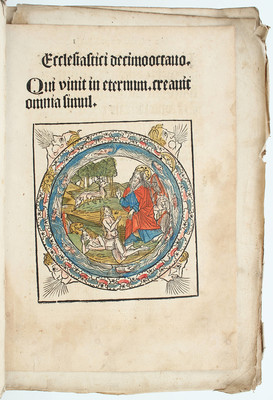 Ecclesiastici decimooctavo.
Qui vivit in eternum. creavit
omnia simul.